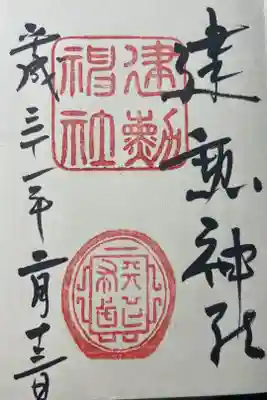 建勲神社
建勳
神社
平成三十一年二月十三日